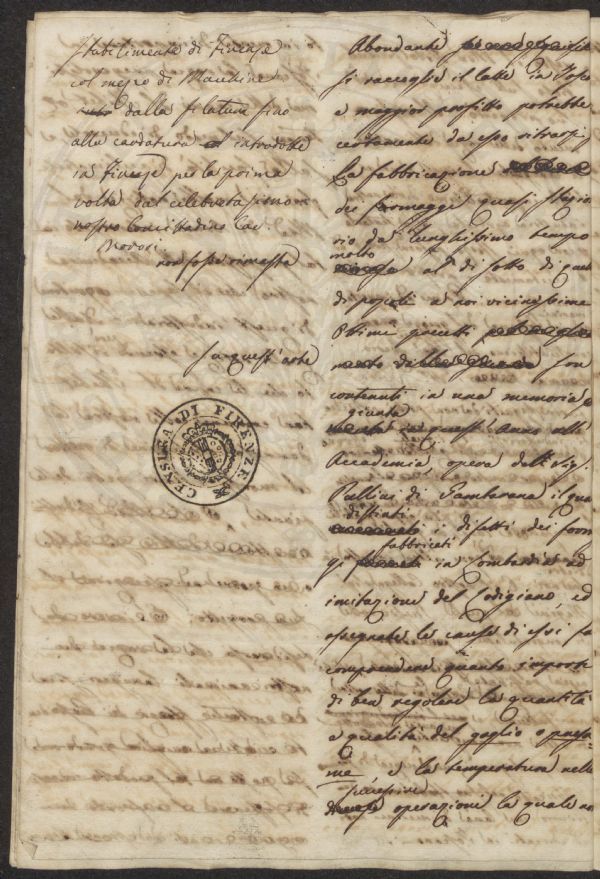 Stabilimento di Firenze
col mezzo di Macchine
dalla filatura fino
alla cardatura introdotte
in Firenze per la prima
volta dal celebratissimo
nostro Concittadino Cav.
non fosse rimasta
In quest'arte
CENSURA DI FIRENZE
Abondante
si raccoglie il latte in Tosc
e maggior profitto potrebbe
certamente da esso ritrarsi.
La fabbricazione
dei formaggi quasi stazio
ria da lunghissimo tempo
molto
al di sotto di quel
di popoli a noi vicinissimi
Ottimi precetti
son
contenuti in una memoria
giunta
quest'Anno alla
Accademia, opera del Sig.
di il qua
i difetti dei form
fabbricati
gi in Lombardia ad
imitazione del Lodigiano, ed
assegnate le cause di essi fa
comprendere quanto importi
di ben regolare la quantità
e qualità del gaglio o presa
me e la temperatura nelle
successive
operazioni la quale no